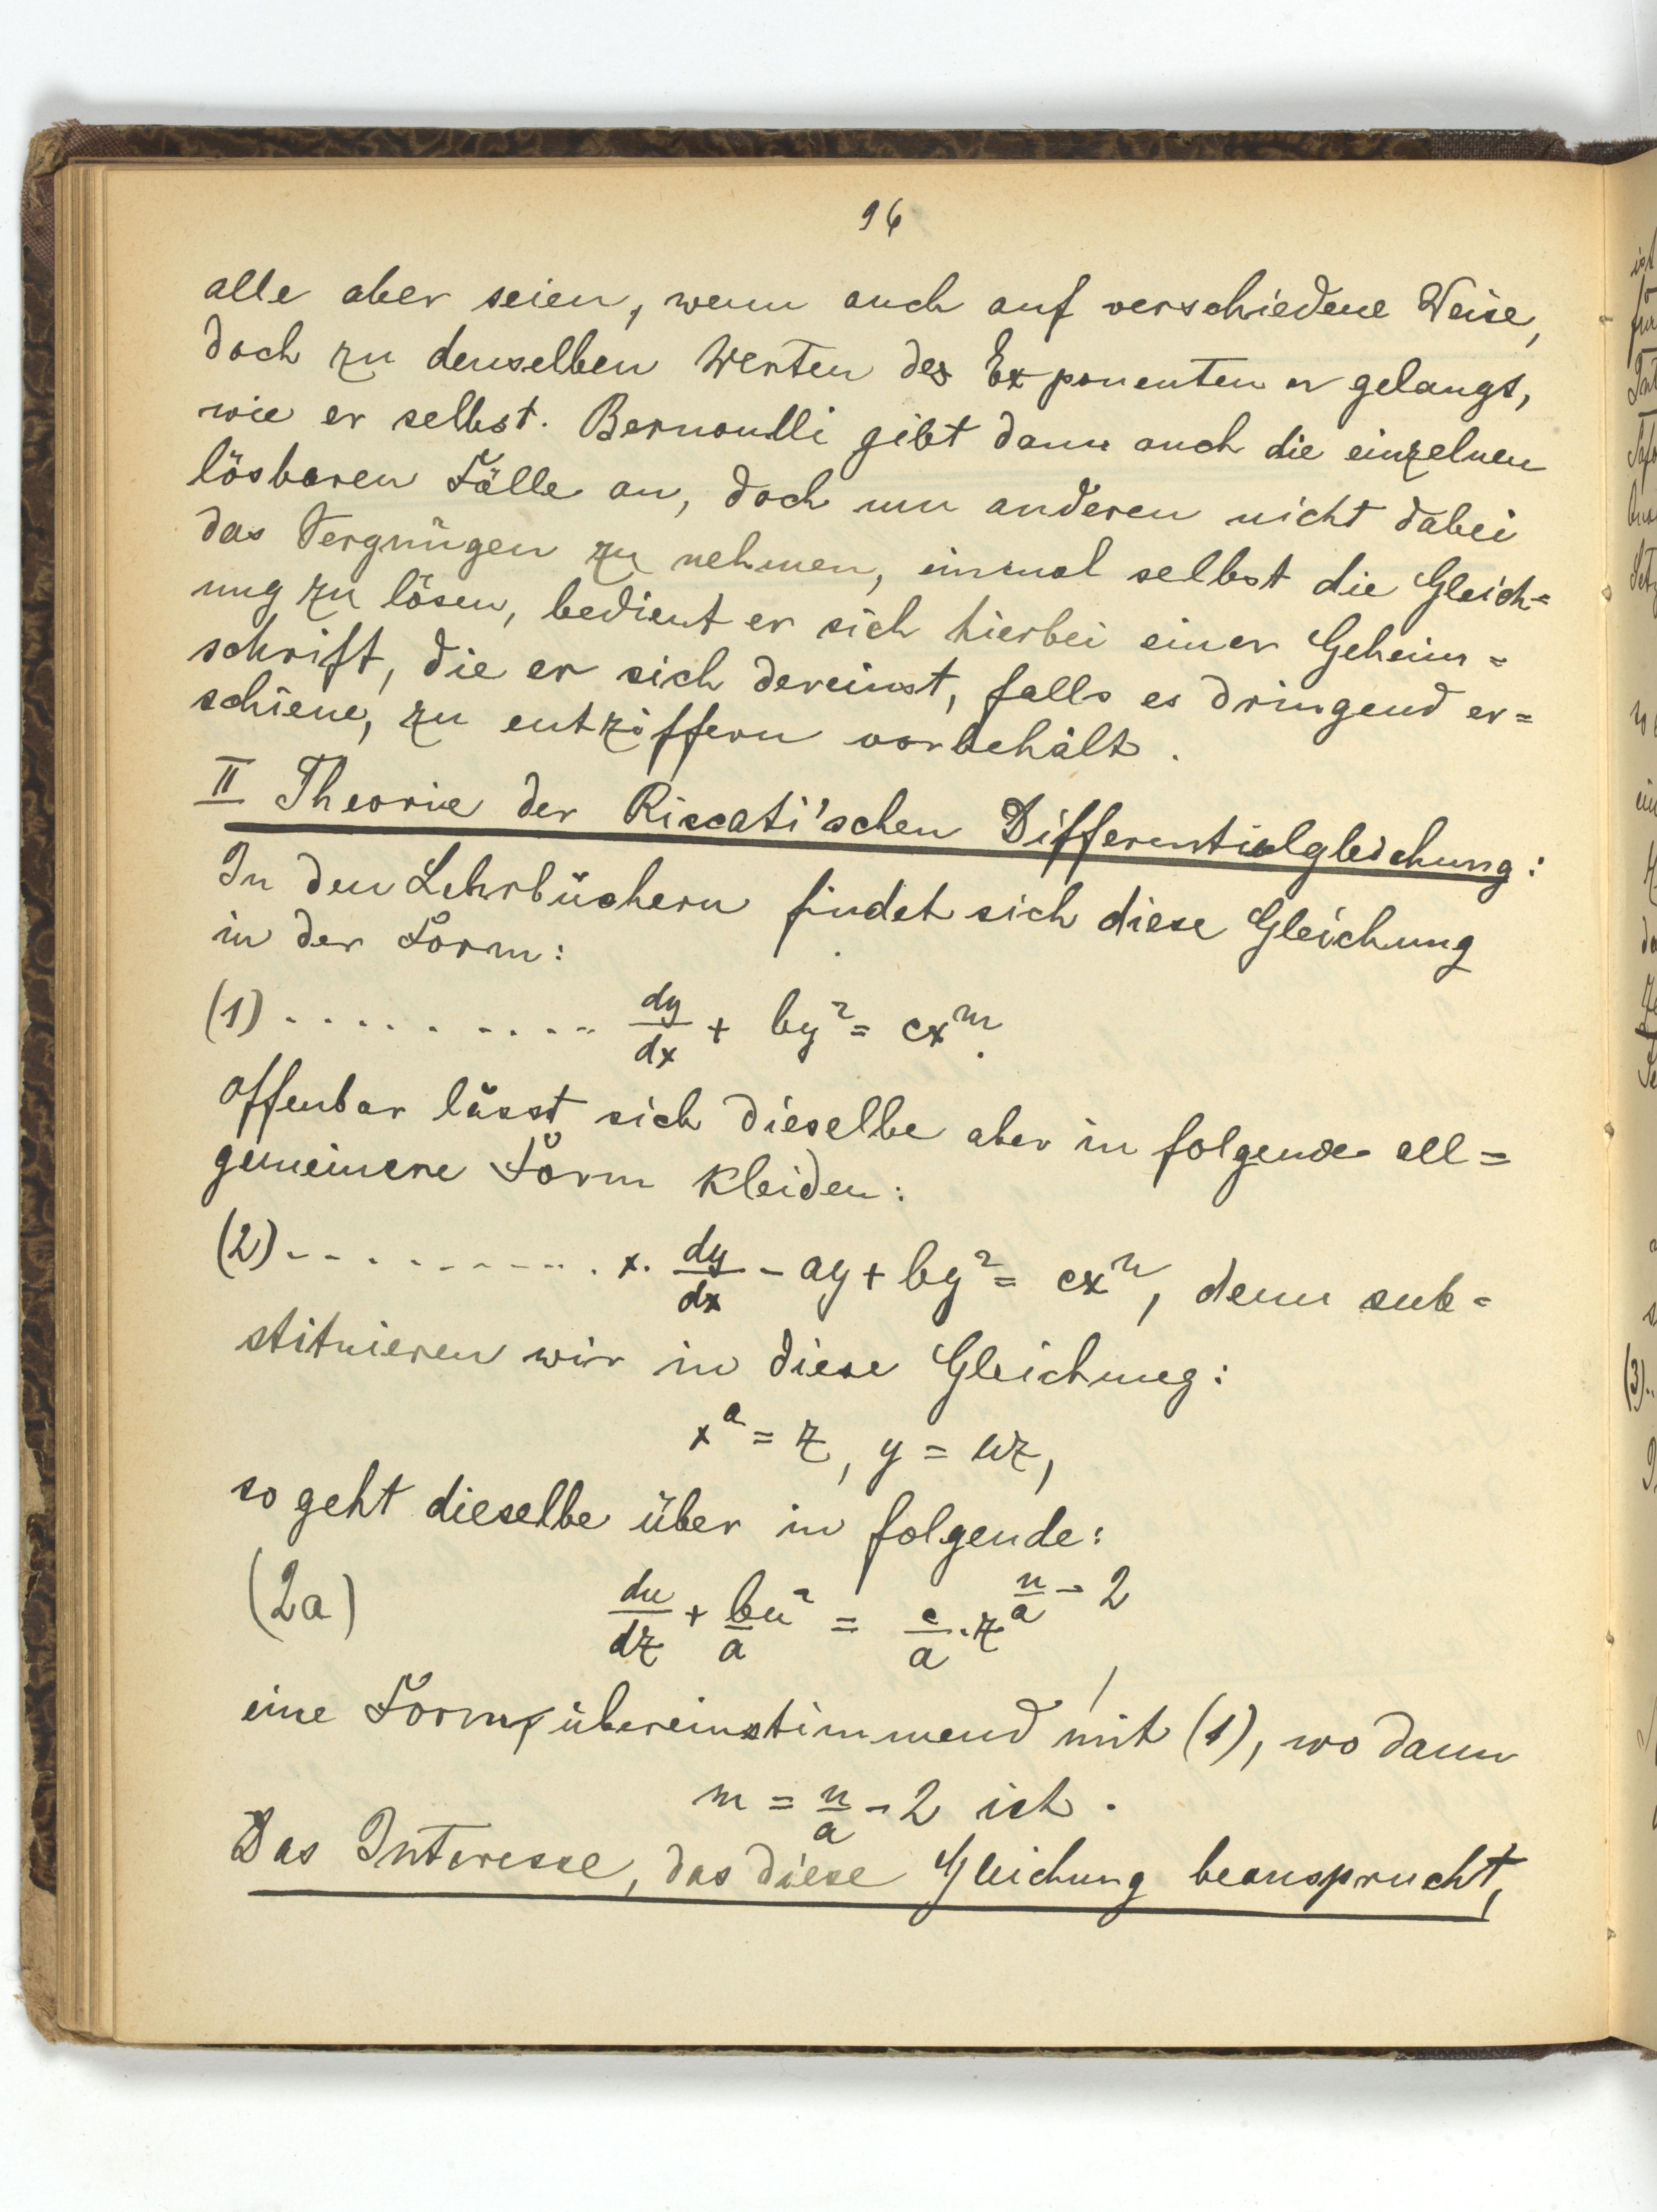 96
alle aber seien, wenn auch auf verschiedene Weise,
doch zu denselben Werten des Exponenten n gelangt,
wie er selbst. Bernoulli gibt dann auch die einzelnen
lösbaren Fälle an, doch um anderen nicht dabei
das Vergnügen zu nehmen, einmal selbst die Gleich=
ung zu lösen, bedient er sich hierbei einer Geheim=
schrift, die er sich dereinst, falls es dringend er=
schiene, zu entziffern vorbehält.
II Theorie der Riccati'schen Differentialgleichung:
In den Lehrbüchern findet sich diese Gleichung
in der Form:
(1) .......... dy/dx + by² = cx^m.
Offenbar lässt sich dieselbe aber in folgende all=
gemeinere Form kleiden:
(2) .......... x. dy/dx - ay + by² = cx^n, denn sub=
stituieren wir in diese Gleichung:
x^a = z, y = uz,
so geht dieselbe über in folgende:
(2a) du/dz + bu²/a = c/a . z^(n/a - 2)
eine Form, übereinstimmend mit (1), wo dann
m = n/a - 2 ist.
Das Interesse, das diese Gleichung beansprucht,